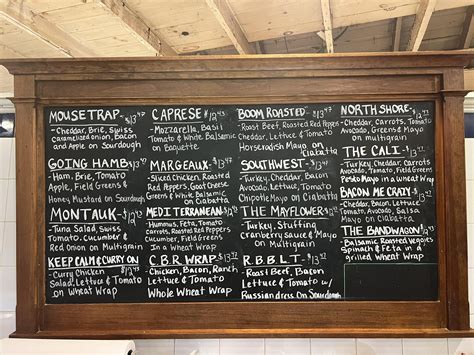 MOUSETRAP -$13.47
-Cheddar, Brie, Swiss
Caramelized onion, Bacon
and Apple on Sourdough
GOING HAMB $13.47
-Ham, Brie, Tomato
Apple, Field Greens &
Honey Mustard on Sourdough
MONTAUK -$12.43
-Tuna Salad, Swiss
Tomato, Cucumber &
Red Onion on Multigrain
KEEP CALM & CURRY ON
-Curry Chicken
Salad, Lettuce & Tomato
on Wheat Wrap
CAPRESE -$12.43
-Mozzarella, Basil
Tomato & White Balsamic
on Baguette
MARGEAUX -$13.47
-Sliced Chicken, Roasted
Red Peppers, Goat Cheese
Greens & White Balsamic
on Ciabatta
MEDITERRANEAN
-Hummus, Feta, Tomato
Carrots, Roasted Red Peppers
Cucumber, Field Greens
in a Wheat Wrap
C.B.R WRAP
-Chicken, Bacon, Ranch
Lettuce & Tomato
Whole Wheat Wrap
BOOM ROASTED -$13.47
-Roast Beef, Roasted Red Peppers
Cheddar, Lettuce & Tomato
Horseradish Mayo on
Ciabatta
SOUTHWEST -$13.47
-Turkey, Cheddar, Bacon,
Lettuce, Tomato & Chipotle
Mayo on Multigrain
THE MAYFLOWER
-Turkey, Stuffing
Cranberry sauce & Mayo
on Multigrain
R.B.B.L.T -$13.47
-Roast Beef, Bacon
Lettuce & Tomato w/
Russian dress On Sourdough
NORTH SHORE -$12.43
-Cheddar, Carrots, Tomato
Avocado, Greens & Mayo
on multigrain
THE CALI -$13.47
-Turkey, Cheddar, Carrots
Avocado, Tomato, Greens
Pesto Mayo in a Wheat Wrap
BACON ME CRAZY -$13.47
-Cheddar, Bacon, Lettuce
Tomato, Avocado, Balsa
Mayo on Ciabatta
THE BANDWAGON
-Balsamic Roasted Veggies
Spinach & Feta in a
grilled Wheat Wrap